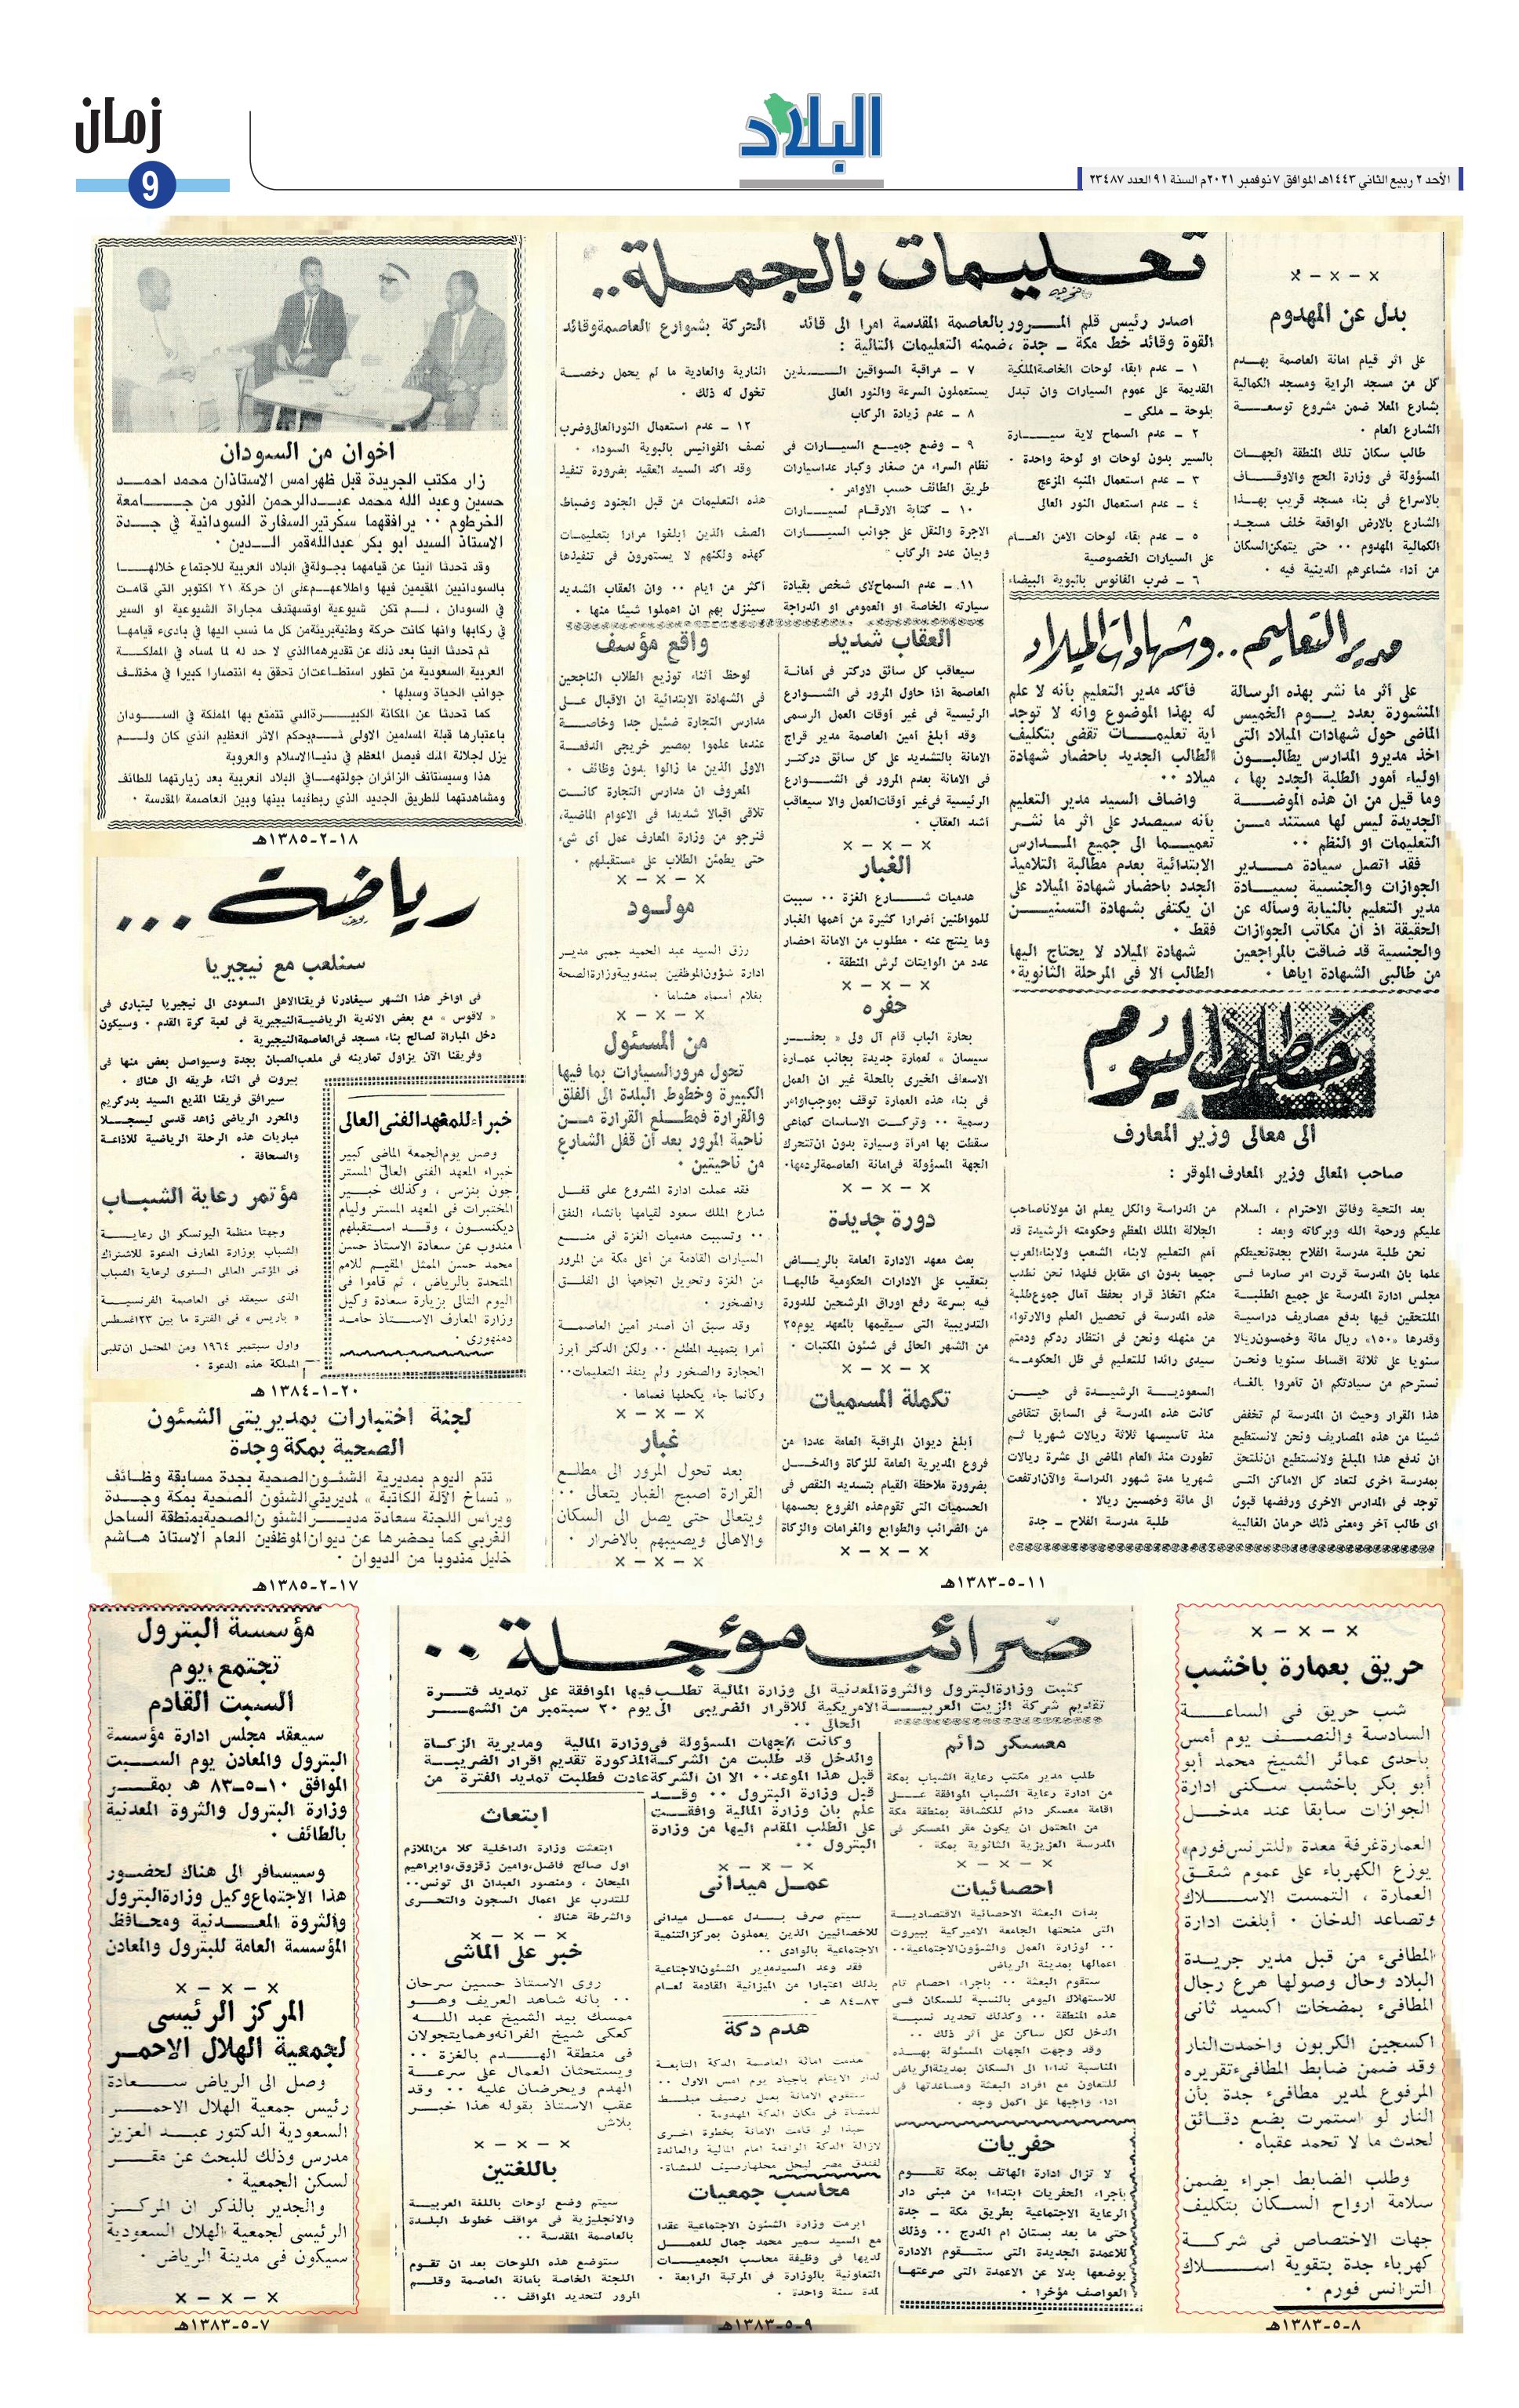 زمان
9
البلاد
الأحد ٢ ربيع الثاني ١٤٤٣هـ الموافق ٧ نوفمبر ٢٠٢١م السنة ٩١ العدد ٢٣٤٨٧
× - × - ×
بدل عن المهدوم
على اثر قيام امانة العاصمة بهدم
كل من مسجد الراية ومسجد الكمالية
بشارع المعلا ضمن مشروع توسعة
الشارع العام .
طالب سكان تلك المنطقة الجهات
المسؤولة فى وزارة الحج والاوقاف
بالاسراع فى بناء مسجد قريب بهذا
الشارع بالارض الواقعة خلف مسجد
الكمالية المهدوم .. حتى يتمكن السكان
من أداء مشاعرهم الدينية فيه .
تعليمات بالجملة ..
اصدر رئيس قلم المرور بالعاصمة المقدسة امرا الى قائد الحركة بشوارع العاصمة وقائد
القوة وقائد خط مكة - جدة ، ضمنه التعليمات التالية :
١ - عدم ابقاء لوحات الخاصة الملكية
القديمة على عموم السيارات وان تبدل
بلوحة - ملكى -
٢ - عدم السماح لاية سيارة
بالسير بدون لوحات او لوحة واحدة .
٣ - عدم استعمال المنبه المزعج
٤ - عدم استعمال النور العالى
٥ - عدم بقاء لوحات الامن العام
على السيارات الخصوصية
٦ - ضرب الفانوس بالبوية البيضاء
٧ - مراقبة السواقين الذين
يستعملون السرعة والنور العالى
٨ - عدم زيادة الركاب
٩ - وضع جميع السيارات فى
نظام السراء من صغار وكبار عدا سيارات
طريق الطائف حسب الاوامر .
١٠ - كتابة الارقام لسيارات
الاجرة والنقل على جوانب السيارات
وبيان عدد الركاب
١١ - عدم السماح لاى شخص بقيادة
سيارته الخاصة او العمومى او الدراجة
النارية والعادية ما لم يحمل رخصة
تخول له ذلك .
١٢ - عدم استعمال النور العالى وضرب
نصف الفوانيس بالبوية السوداء .
وقد اكد السيد العقيد بضرورة تنفيذ
هذه التعليمات من قبل الجنود وضباط
الصف الذين ابلغوا مرارا بتعليمات
كهذه ولكنهم لا يستمرون فى تنفيذها
أكثر من ايام .. وان العقاب الشديد
سينزل بهم ان اهملوا شيئا منها .
مدير التعليم .. وشهادات الميلاد
على أثر ما نشر بهذه الرسالة
المنشورة بعدد يوم الخميس
الماضى حول شهادات الميلاد التى
اخذ مديرو المدارس يطالبون
اولياء أمور الطلبة الجدد بها ،
وما قيل من ان هذه الموضة
الجديدة ليس لها مستند من
التعليمات او النظم ..
فقد اتصل سيادة مدير
الجوازات والجنسية بسيادة
مدير التعليم بالنيابة وسأله عن
الحقيقة اذ أن مكاتب الجوازات
والجنسية قد ضاقت بالمراجعين
من طالبى الشهادة اياها .
فأكد مدير التعليم بأنه لا علم
له بهذا الموضوع وانه لا توجد
اية تعليمات تقضى بتكليف
الطالب الجديد باحضار شهادة
ميلاد ..
واضاف السيد مدير التعليم
بأنه سيصدر على اثر ما نشر
تعميما الى جميع المدارس
الابتدائية بعدم مطالبة التلاميذ
الجدد باحضار شهادة الميلاد على
ان يكتفى بشهادة التسنين
فقط .
شهادة الميلاد لا يحتاج اليها
الطالب الا فى المرحلة الثانوية .
خطاب اليوم
الى معالى وزير المعارف
صاحب المعالى وزير المعارف الموقر :
بعد التحية وفائق الاحترام ، السلام
عليكم ورحمة الله وبركاته وبعد :
نحن طلبة مدرسة الفلاح بجدة نحيطكم
علما بان المدرسة قررت امر صارما فى
مجلس ادارة المدرسة على جميع الطلبة
الملتحقين فيها بدفع مصاريف دراسية
وقدرها «١٥٠» ريال مائة وخمسون ريالا
سنويا على ثلاثة اقساط سنويا ونحن
نسترحم من سيادتكم ان تأمروا بالغاء
هذا القرار وحيث ان المدرسة لم تخفض
شيئا من هذه المصاريف ونحن لانستطيع
ان ندفع هذا المبلغ ولانستطيع ان نلتحق
بمدرسة اخرى لتعاد كل الاماكن التى
توجد فى المدارس الاخرى ورفضها قبول
اى طالب آخر ومعنى ذلك حرمان الغالبية
من الدراسة والكل يعلم ان مولانا صاحب
الجلالة الملك المعظم وحكومته الرشيدة قد
أمم التعليم لابناء الشعب ولابناء العرب
جميعا بدون اى مقابل فلهذا نحن نطلب
منكم اتخاذ قرار بحفظ آمال جموع طلبة
هذه المدرسة فى تحصيل العلم والارتواء
من منهله ونحن فى انتظار ردكم ودمتم
سيدى رائدا للتعليم فى ظل الحكومة
السعودية الرشيدة فى حين
كانت هذه المدرسة فى السابق تتقاضى
منذ تاسيسها ثلاثة ريالات شهريا ثم
تطورت منذ العام الماضى الى عشرة ريالات
شهريا مدة شهور الدراسة والآن ارتفعت
الى مائة وخمسين ريالا .
طلبة مدرسة الفلاح - جدة
العقاب شديد
سيعاقب كل سائق دركتر فى أمانة
العاصمة اذا حاول المرور فى الشوارع
الرئيسية فى غير أوقات العمل الرسمى
وقد أبلغ أمين العاصمة مدير قراج
الامانة بالتشديد على كل سائق دركتر
فى الامانة بعدم المرور فى الشوارع
الرئيسية فى غير أوقات العمل والا سيعاقب
أشد العقاب .
× - × - ×
الغبار
هدميات شارع الغزة .. سببت
للمواطنين أضرارا كثيرة من أهمها الغبار
وما ينتج عنه . مطلوب من الامانة احضار
عدد من الوايتات لرش المنطقة .
× - × - ×
حفره
بحارة الباب قام آل ولى « بحفر
سيسان » لعمارة جديدة بجانب عمارة
الاسعاف الخيرى بالمحلة غير ان العمل
فى بناء هذه العمارة توقف بموجب اوامر
رسمية .. وتركت الاساسات كماهى
سقطت بها امرأة وسيارة بدون ان تتحرك
الجهة المسؤولة فى امانة العاصمة لردمها .
× - × - ×
دورة جديدة
بعث معهد الادارة العامة بالرياض
بتعقيب على الادارات الحكومية طالبها
فيه بسرعة رفع اوراق المرشحين للدورة
التدريبية التى سيقيمها بالمعهد يوم ٢٥
من الشهر الحالى فى شئون المكتبات .
× - × - ×
تكملة المسميات
أبلغ ديوان المراقبة العامة عددا من
فروع المديرية العامة للزكاة والدخل
بضرورة ملاحظة القيام بتسديد النقص فى
الحسميات التى تقوم هذه الفروع بحسمها
من الضرائب والطوابع والغرامات والزكاة
× - × - ×
واقع مؤسف
لوحظ أثناء توزيع الطلاب الناجحين
فى الشهادة الابتدائية ان الاقبال على
مدارس التجارة ضئيل جدا وخاصة
عندما علموا بمصير خريجى الدفعة
الاولى الذين ما زالوا بدون وظائف .
المعروف ان مدارس التجارة كانت
تلاقى اقبالا شديدا فى الاعوام الماضية،
فنرجو من وزارة المعارف عمل أى شىء
حتى يطمئن الطلاب على مستقبلهم .
× - × - ×
مولود
رزق السيد عبد الحميد جمبى مدير
ادارة شؤون الموظفين بمندوبية وزارة الصحة
بغلام أسماه هشاما .
× - × - ×
من المسئول
تحول مرور السيارات بما فيها
الكبيرة وخطوط البلدة الى الفلق
والقرارة فمطلع القرارة من
ناحية المرور بعد أن قفل الشارع
من ناحيتين .
فقد عملت ادارة المشروع على قفل
شارع الملك سعود لقيامها بانشاء النفق
.. وتسببت هدميات الغزة فى منع
السيارات القادمة من أعلى مكة من المرور
من الغزة وتحويل اتجاهها الى الفلق
والصخور .
وقد سبق أن أصدر أمين العاصمة
أمرا بتمهيد المطلع .. ولكن الدكتر أبرز
الحجارة والصخور ولم ينفذ التعليمات ..
وكأنما جاء يكحلها فعماها .
× - × - ×
غبار
بعد تحول المرور الى مطلع
القرارة اصبح الغبار يتعالى ..
ويتعالى حتى يصل الى السكان
والاهالى ويصيبهم بالاضرار .
× - × - ×
١١-٥-١٣٨٣هـ
اخوان من السودان
زار مكتب الجريدة قبل ظهر امس الاستاذان محمد احمد
حسين وعبد الله محمد عبدالرحمن النور من جامعة
الخرطوم .. يرافقهما سكرتير السفارة السودانية في جدة
الاستاذ السيد ابو بكر عبدالله قمر الدين .
وقد تحدثا الينا عن قيامهما بجولة في البلاد العربية للاجتماع خلالها
بالسودانيين المقيمين فيها واطلاعهم على ان حركة ٢١ اكتوبر التي قامت
في السودان ، لم تكن شيوعية او تستهدف مجاراة الشيوعية او السير
في ركابها وانها كانت حركة وطنية بريئة من كل ما نسب اليها في بادىء قيامها
ثم تحدثا الينا بعد ذلك عن تقديرهما الذي لا حد له لما لمساه في المملكة
العربية السعودية من تطور استطاعت ان تحقق به انتصارا كبيرا في مختلف
جوانب الحياة وسبلها .
كما تحدثا عن المكانة الكبيرة التي تتمتع بها المملكة في السودان
باعتبارها قبلة المسلمين الاولى ثم بحكم الاثر العظيم الذي كان ولم
يزل لجلالة الملك فيصل المعظم في دنيا الاسلام والعروبة
هذا وسيستانف الزائران جولتهما في البلاد العربية بعد زيارتهما للطائف
ومشاهدتهما للطريق الجديد الذي ربط فيما بينها وبين العاصمة المقدسة .
١٨-٢-١٣٨٥هـ
رياضة ...
سنلعب مع نيجيريا
فى اواخر هذا الشهر سيغادرنا فريقنا الاهلى السعودى الى نيجيريا ليتبارى فى
« لاقوس » مع بعض الاندية الرياضية النيجيرية فى لعبة كرة القدم . وسيكون
دخل المباراة لصالح بناء مسجد فى العاصمة النيجيرية .
وفريقنا الآن يزاول تمارينه فى ملعب الصبان بجدة وسيواصل بعض منها فى
بيروت فى اثناء طريقه الى هناك .
سيرافق فريقنا المذيع السيد بدر كريم
والمحرر الرياضى زاهد قدسى ليسجلا
مباريات هذه الرحلة الرياضية للاذاعة
والصحافة .
مؤتمر رعاية الشباب
وجهتا منظمة اليونسكو الى رعاية
الشباب بوزارة المعارف الدعوة للاشتراك
فى المؤتمر العالى السنوى لرعاية الشباب
الذى سيعقد فى العاصمة الفرنسية
« باريس » فى الفترة ما بين ٢٣ اغسطس
واول سبتمبر ١٩٦٤ ومن المحتمل ان تلبى
المملكة هذه الدعوة .
خبراء للمعهد الفنى العالى
وصل يوم الجمعة الماضى كبير
خبراء المعهد الفنى العالى المستر
جون بنزس ، وكذلك خبير
المختبرات فى المعهد المستر وليام
ديكنسون ، وقد استقبلهم
مندوب عن سعادة الاستاذ حسن
محمد حسن الممثل المقيم للامم
المتحدة بالرياض ، ثم قاموا فى
اليوم التالى بزيارة سعادة وكيل
وزارة المعارف الاستاذ حامد
دمنهورى .
٢٠-١-١٣٨٤ هـ
لجنة اختبارات بمديريتى الشئون
الصحية بمكة وجدة
تتم اليوم بمديرية الشئون الصحية بجدة مسابقة وظائف
« نساخ الآلة الكاتبة » لمديريتي الشئون الصحية بمكة وجدة
ويرأس اللجنة سعادة مدير الشئون الصحية بمنطقة الساحل
الغربي كما يحضرها عن ديوان الموظفين العام الاستاذ هاشم
خليل مندوبا من الديوان .
١٧-٢-١٣٨٥هـ
× - × - ×
حريق بعمارة باخشب
شب حريق فى الساعة
السادسة والنصف يوم أمس
باحدى عمائر الشيخ محمد أبو
أبو بكر باخشب سكنى ادارة
الجوازات سابقا عند مدخل
العمارة غرفة معدة «للترنس فورم»
يوزع الكهرباء على عموم شقق
العمارة ، التمست الاسلاك
وتصاعد الدخان . أبلغت ادارة
المطافىء من قبل مدير جريدة
البلاد وحال وصولها هرع رجال
المطافىء بمضخات اكسيد ثانى
اكسجين الكربون واخمدت النار
وقد ضمن ضابط المطافىء تقريره
المرفوع لمدير مطافىء جدة بأن
النار لو استمرت بضع دقائق
لحدث ما لا تحمد عقباه .
وطلب الضابط اجراء يضمن
سلامة ارواح السكان بتكليف
جهات الاختصاص فى شركة
كهرباء جدة بتقوية اسلاك
الترانس فورم .
٨-٥-١٣٨٣هـ
ضرائب مؤجلة ..
كتبت وزارة البترول والثروة المعدنية الى وزارة المالية تطلب فيها الموافقة على تمديد فترة
تقديم شركة الزيت العربية الامريكية للاقرار الضريبى الى يوم ٣٠ سبتمبر من الشهر
الحالى ..
وكانت الجهات المسؤولة فى وزارة المالية ومديرية الزكاة
والدخل قد طلبت من الشركة المذكورة تقديم اقرار الضريبة
قبل هذا الموعد .. الا ان الشركة عادت فطلبت تمديد الفترة من
قبل وزارة البترول .. وقد
علم بان وزارة المالية وافقت
على الطلب المقدم اليها من وزارة
البترول ..
معسكر دائم
طلب مدير مكتب رعاية الشباب بمكة
من ادارة رعاية الشباب الموافقة على
اقامة معسكر دائم للكشافة بمنطقة مكة
من المحتمل ان يكون مقر المعسكر فى
المدرسة العزيزية الثانوية بمكة .
× - × - ×
احصائيات
بدأت البعثة الاحصائية الاقتصادية
التى منحتها الجامعة الاميركية ببيروت
.. لوزارة العمل والشؤون الاجتماعية ..
اعمالها بمدينة الرياض
ستقوم البعثة .. باجراء احصاء تام
للاستهلاك اليومى بالنسبة للسكان فى
هذه المنطقة .. وكذلك تحديد نسبة
الدخل لكل ساكن على أثر ذلك ..
وقد وجهت الجهات المسئولة بهذه
المناسبة نداءا الى السكان بمدينة الرياض
للتعاون مع افراد البعثة ومساعدتها فى
اداء واجبها على اكمل وجه .
حفريات
لا تزال ادارة الهاتف بمكة تقوم
بأجراء الحفريات ابتداءا من مبنى دار
الرعاية الاجتماعية بطريق مكة - جدة
حتى ما بعد بستان ام الدرج .. وذلك
للاعمدة الجديدة التى ستقوم الادارة
بوضعها بدلا عن الاعمدة التى صرعتها
العواصف مؤخرا .
× - × - ×
عمل ميدانى
سيتم صرف بدل عمل ميدانى
للاخصائيين الذين يعملون بمركز التنمية
الاجتماعية بالوادى ..
فقد وعد السيد مدير الشئون الاجتماعية
بذلك اعتبارا من الميزانية القادمة لعام
٨٣-٨٤ هـ .
هدم دكة
هدمت امانة العاصمة الدكة التابعة
لدار الايتام بأجياد يوم امس الاول ..
ستقوم الامانة بعمل رصيف مبلط
للمشاة فى مكان الدكة المهدومة .
حبذا لو قامت الامانة بخطوة اخرى
لازالة الدكة الواقعة امام المالية والعائدة
لفندق مصر ليحل محلها رصيف للمشاة .
محاسب جمعيات
ابرمت وزارة الشئون الاجتماعية عقدا
مع السيد سمير محمد جمال للعمل
لديها فى وظيفة محاسب الجمعيات
التعاونية بالوزارة فى المرتبة الرابعة .
لمدة سنة واحدة .
ابتعاث
ابتعثت وزارة الداخلية كلا من الملازم
اول صالح فاضل، وامين زقزوق، وابراهيم
الميحان ، ومنصور العبدان الى تونس ..
للتدرب على اعمال السجون والتحرى
والشرطة هناك .
× - × - ×
خبر على الماشى
روى الاستاذ حسين سرحان
.. بانه شاهد العريف وهو
ممسك بيد الشيخ عبد الله
كعكى شيخ الفرانه وهما يتجولان
فى منطقة الهدم بالغزة ..
ويستحثان العمال على سرعة
الهدم ويحرضان عليه .. وقد
عقب الاستاذ بقوله هذا خبر
بلاش
× - × - ×
باللغتين
سيتم وضع لوحات باللغة العربية
والانجليزية فى مواقف خطوط البلدة
بالعاصمة المقدسة ..
ستوضع هذه اللوحات بعد ان تقوم
اللجنة الخاصة بأمانة العاصمة وقلم
المرور لتحديد المواقف ..
٩-٥-١٣٨٣هـ
مؤسسة البترول
تجتمع يوم
السبت القادم
سيعقد مجلس ادارة مؤسسة
البترول والمعادن يوم السبت
الموافق ١٠-٥-٨٣ هـ بمقر
وزارة البترول والثروة المعدنية
بالطائف .
وسيسافر الى هناك لحضور
هذا الاجتماع وكيل وزارة البترول
والثروة المعدنية ومحافظ
المؤسسة العامة للبترول والمعادن
× - × - ×
المركز الرئيسى
لجمعية الهلال الاحمر
وصل الى الرياض سعادة
رئيس جمعية الهلال الاحمر
السعودية الدكتور عبد العزيز
مدرس وذلك للبحث عن مقر
لسكن الجمعية .
والجدير بالذكر ان المركز
الرئيسى لجمعية الهلال السعودية
سيكون فى مدينة الرياض .
× - × - ×
٧-٥-١٣٨٣هـ